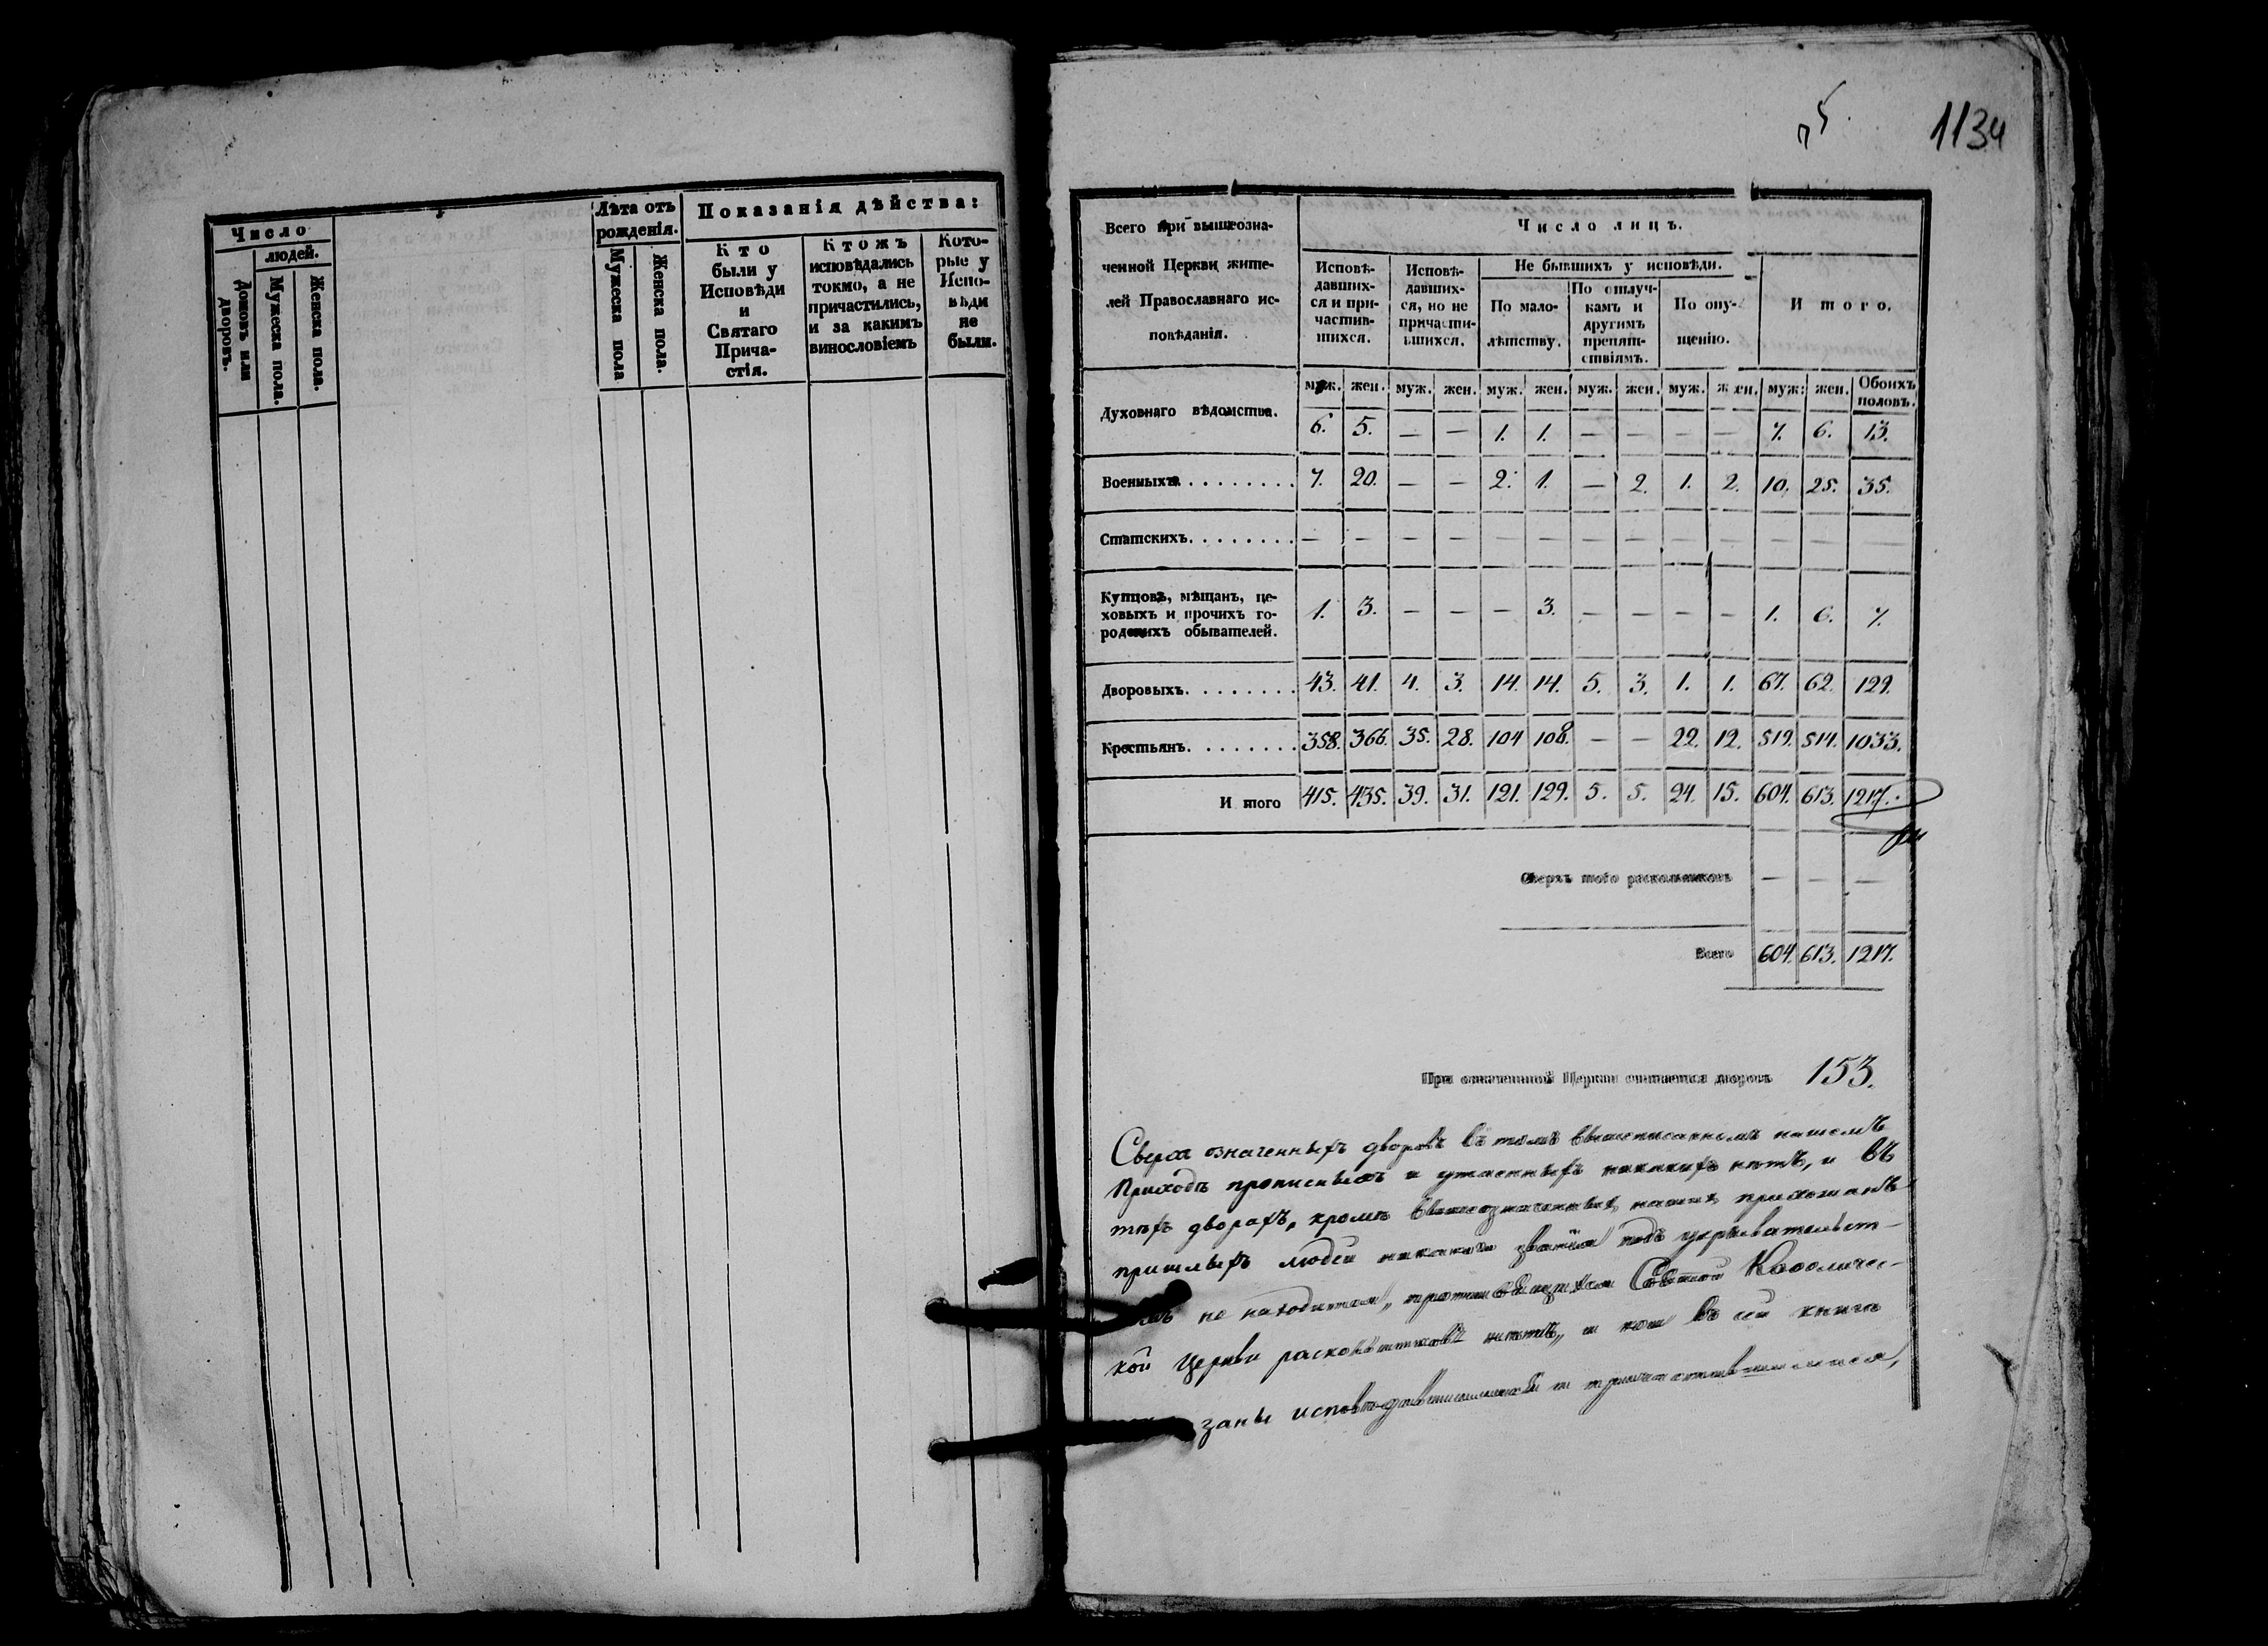 Число
людей.
Домовъ или дворовъ.
Мужеска пола.
Женска пола.
Лѣта отъ рожденія.
Мужеска пола
Женска пола.
Показанія дѣйства:
Кто
были у
Исповѣди
и
Святаго
Прича-
стія.
Ктожъ
исповѣдались
токмо, а не
причастились,
и за какимъ
винословіемъ
Кото-
рые у
Испо-
вѣди
не
были.
1134
Всего при вышеозна-
ченной Церкви жите-
лей Православнаго ис-
повѣданія.
Число лицъ.
Исповѣ-
давших-
ся и при-
частив-
шихся.
Исповѣ-
давших-
ся, но не
причасти-
вшихся.
Не бывшихъ у исповѣди.
По мало-
лѣтству.
По отлуч-
камъ и
другимъ
препят-
ствіямъ.
По опу-
щенію.
Итого.
муж. жен. муж. жен. муж. жен. муж. жен. муж. жен. муж: жен. Обоихъ половъ.
Духовнаго вѣдомства. 6. 5. — — 1. 1. — — — — 7. 6. 13.
Военныхъ. . . . . . . . 7. 20. — — 2. 1. — 2. 1. 2. 10. 25. 35.
Статскихъ. . . . . . . . — — — — — — — — — — — — —
Купцовъ, мѣщанъ, це-
ховыхъ и прочихъ го-
родскихъ обывателей. 1. 3. — — — 3. — — — — 1. 6. 7.
Дворовыхъ. . . . . . . . 43. 41. 4. 3. 14. 14. 5. 3. 1. 1. 67. 62. 129.
Крестьянъ. . . . . . . . 358. 366. 35. 28. 104 108. — — 22. 12. 519. 514. 1033.
И того 415. 435. 39. 31. 121. 129. 5. 5. 24. 15. 604. 613. 1217.
Сверхъ того раскольниковъ — — —
Всего 604. 613. 1217.
При означенной Церкви считается дворовъ 153.
Сверхъ означенныхъ дворовъ въ томъ вышеписанномъ нашемъ
Приходѣ прописныхъ и утаенныхъ никакихъ нѣтъ, и въ
тѣхъ дворахъ, кромѣ вышеозначенныхъ нашихъ прихожанъ
пришлыхъ людей никакого званія подъ укрывательст-
не находится, противящихся Святой Каѳоличес-
кой Церкви раскольниковъ нѣтъ, и кои въ сей книгѣ
заны исповѣдавшимися и причастившимися,